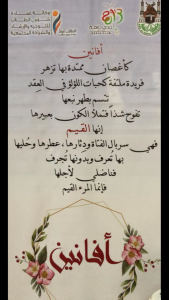 أفانين
كأغصان ممتدة بها تزهر
فريدة ملتفة كحبات اللؤلؤ في العقد
تتسم بطهر نبعها
تفوح شذاً فتملأ الكون بعبيرها
إنها القيم
فهي سربال الفتاة ودثارها، عطرها وحليها
بها تعرف وبدونها تجرف
فناضلي لأجلها
فإنما المرء القيم
أفانين